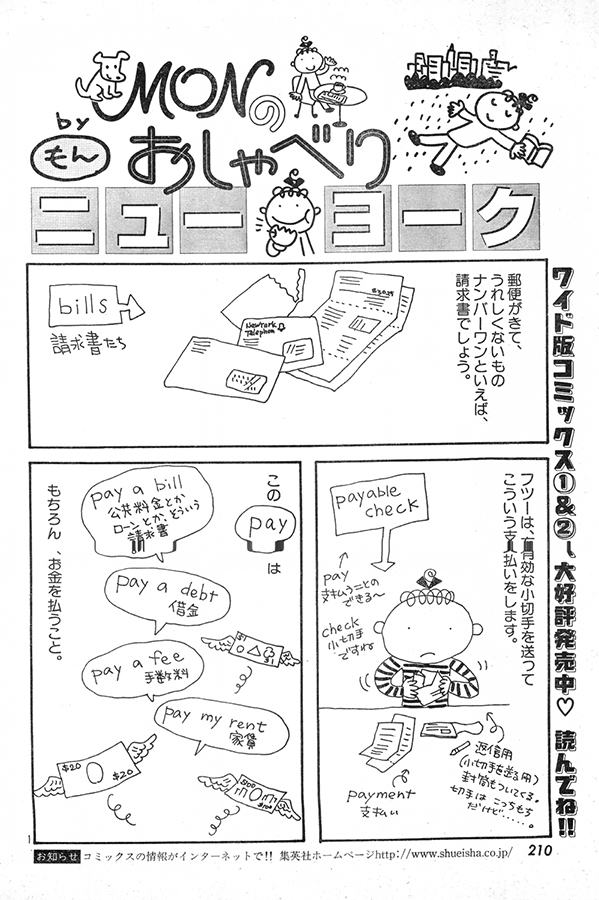 MONの
by もん
おしゃべり
ニューヨーク
ワイド版コミックス①&②、大好評発売中♡ 読んでね!!
郵便がきて、
うれしくないもの
ナンバーワンといえば、
請求書でしょう。
bills
請求書たち
New York
Telephon
フツーは、有効な小切手を送って
こういう支払いをします。
payable
check
pay
支払うことの
できる〜
check
小切手
ですね
返信用
(小切手を送る用)
封筒もついてくる。
切手はこっちもち
だけど……。
payment
支払い
この
pay
は
もちろん、お金を払うこと。
pay a bill
公共料金とか
ローンとか、どういう
請求書
pay a debt
借金
pay a fee
手数料
pay my rent
家賃
$20
$20
$100
$100
$1
$1
1
お知らせ コミックスの情報がインターネットで!! 集英社ホームページhttp://www.shueisha.co.jp/
210